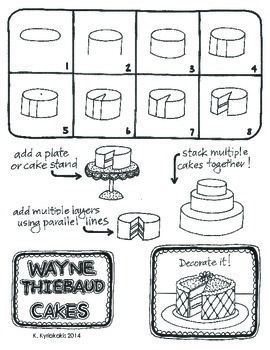 1
2
3
4
5
6
7
8
add a plate
or cake stand
stack multiple
cakes together!
add multiple layers
using parallel lines
WAYNE
THIEBAUD
CAKES
Decorate it!
K. Kyriakakis 2014